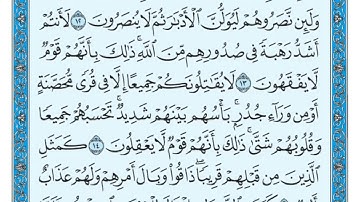 وَلَئِن نَّصَرُوهُمْ لَيُوَلُّنَّ ٱلْأَدْبَٰرَ ثُمَّ لَا يُنصَرُونَ ١٢ لَأَنتُمْ
أَشَدُّ رَهْبَةً فِى صُدُورِهِم مِّنَ ٱللَّهِ ۚ ذَٰلِكَ بِأَنَّهُمْ قَوْمٌ
لَّا يَفْقَهُونَ ١٣ لَا يُقَٰتِلُونَكُمْ جَمِيعًا إِلَّا فِى قُرًى مُّحَصَّنَةٍ
أَوْ مِن وَرَآءِ جُدُرٍۭ ۚ بَأْسُهُم بَيْنَهُمْ شَدِيدٌ ۚ تَحْسَبُهُمْ جَمِيعًا
وَقُلُوبُهُمْ شَتَّىٰ ۚ ذَٰلِكَ بِأَنَّهُمْ قَوْمٌ لَّا يَعْقِلُونَ ١٤ كَمَثَلِ
ٱلَّذِينَ مِن قَبْلِهِمْ قَرِيبًا ۖ ذَاقُوا۟ وَبَالَ أَمْرِهِمْ وَلَهُمْ عَذَابٌ